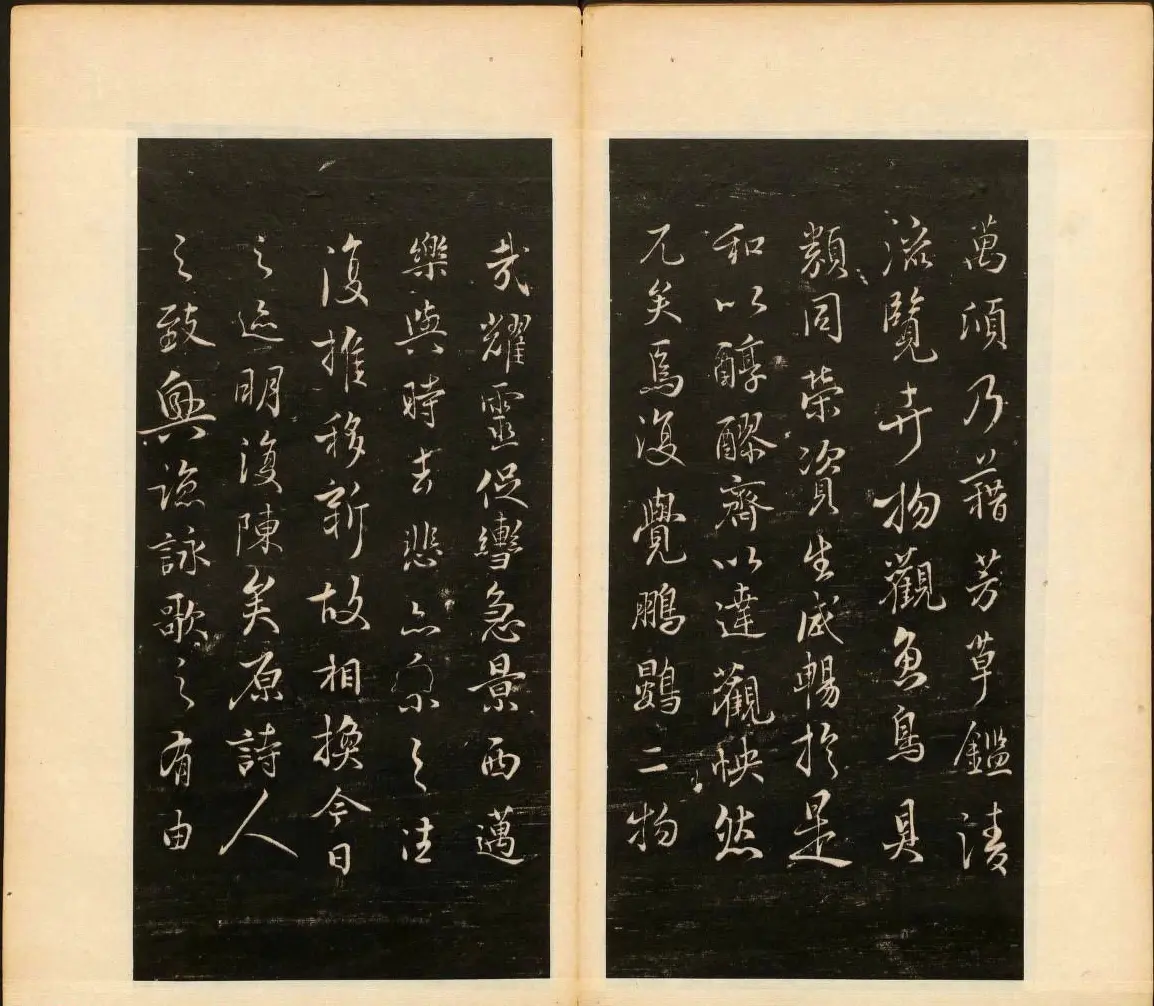 萬頃乃藉芳草鑑清
流覽卉物觀魚鳥具
類同榮資生咸暢於是
和以醇醪齊以達觀怏然
兀矣焉復覺鵬鷃二物
哉耀靈促轡急景西邁
樂與時去悲亦系之往
復推移新故相換今日
之迹明復陳矣原詩人
之致興諒詠歌之有由